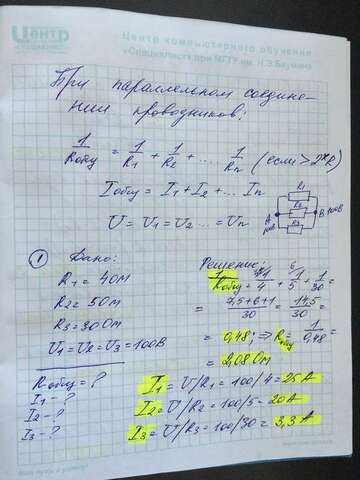 Центр компьютерного обучения
Центр
специалист
«Специалист» при МГТУ им. Н.Э.Баумана
При параллельном соедине-
нии проводников:
1/Rобщ = 1/R1 + 1/R2 + .... 1/Rn (если ≥ 2x R)
Iобщ = I1 + I2 + ... In
U = U1 = U2 ... = Un
R1
R2
R3
A
B 100В
① Дано:
R1 = 4Ом
R2 = 5Ом
R3 = 30Ом
U1 = U2 = U3 = 100В
Rобщ = ?
I1 - ?
I2 - ?
I3 - ?
Решение:
1/Rобщ = 1/4 + 1/5 + 1/30 =
= 7,5+6+1/30 = 14,5/30 =
= 0,48 ⇒ Rобщ = 1/0,48 =
= 2,08 Ом
I1 = U/R1 = 100/4 = 25 А
I2 = U/R2 = 100/5 = 20 А
I3 = U/R3 = 100/30 = 3,3 А